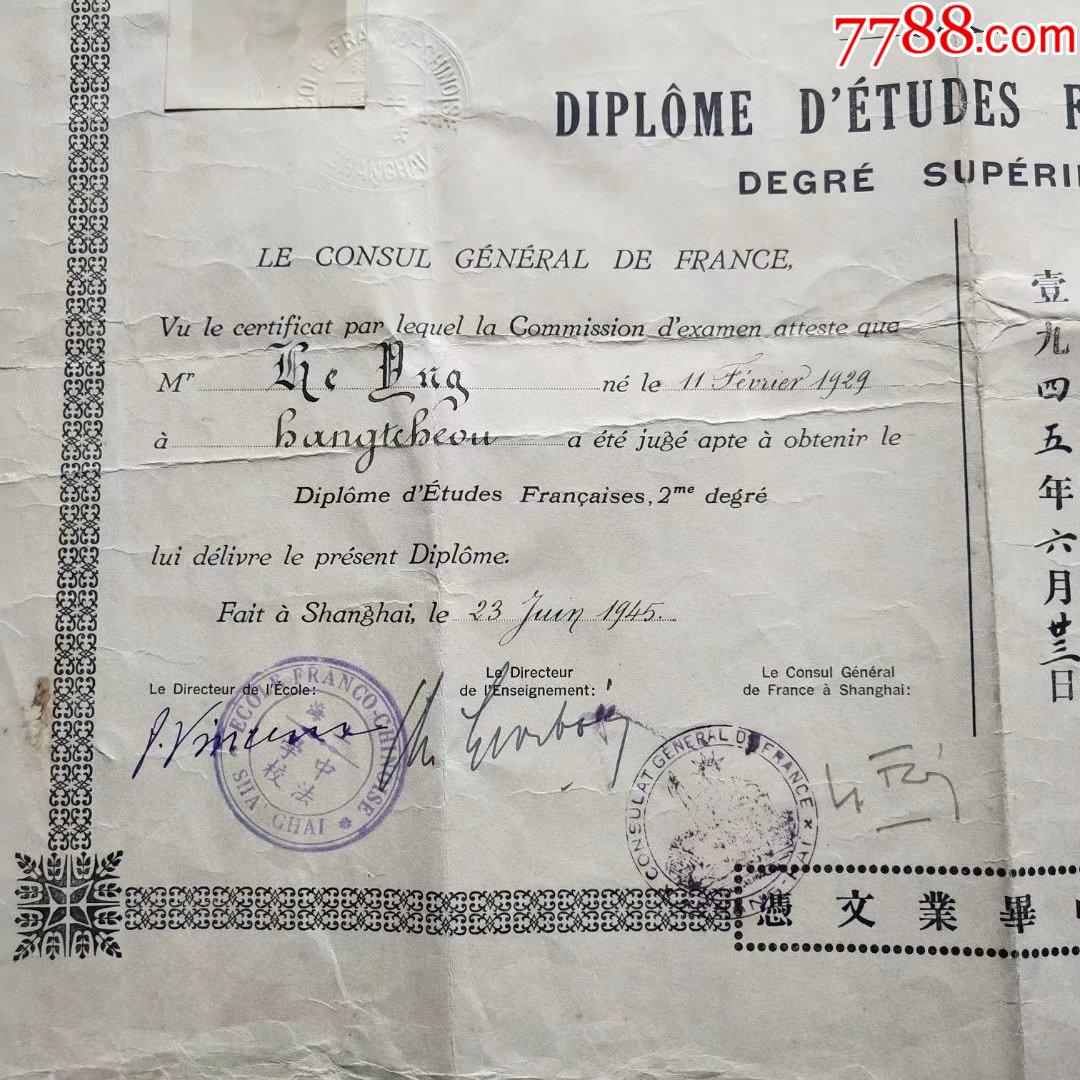 7788.com
ÉCOLE FRANCO-CHINOISE
DIPLÔME D'ÉTUDES F
DEGRÉ SUPÉRI
LE CONSUL GÉNÉRAL DE FRANCE,
Vu le certificat par lequel la Commission d'examen atteste que
Mʳ He Yng né le 11 Février 1929
à hangtcheou a été jugé apte à obtenir le
Diplôme d'Études Françaises, 2ᵐᵉ degré
lui délivre le présent Diplôme.
Fait à Shanghai, le 23 Juin 1945.
Le Directeur de l'École:
Le Directeur
de l'Enseignement:
Le Consul Général
de France à Shanghai:
ECOLE FRANCO-CHINOISE
SHA GHAI
中法學校
CONSULAT GÉNÉRAL DE FRANCE
壹九四五年六月廿三日
憑文業畢